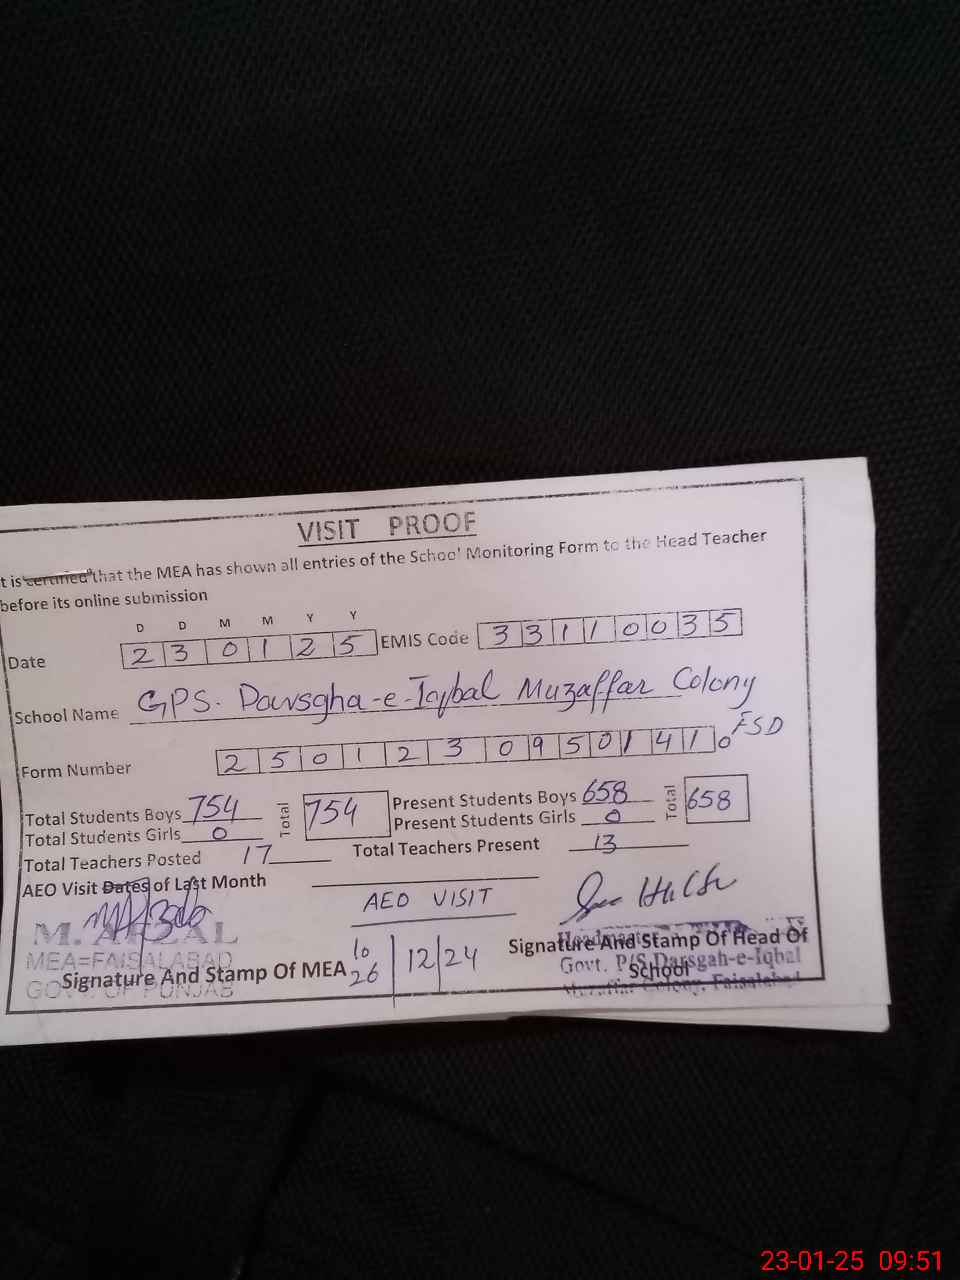 VISIT PROOF
t is certified that the MEA has shown all entries of the School Monitoring Form to the Head Teacher
before its online submission
D D M M Y Y
Date 2 3 0 1 2 5 EMIS Code 3 3 1 1 0 0 3 5
School Name GPS. Darsgha-e-Iqbal Muzaffar Colony
FSD
Form Number 2 5 0 1 2 3 0 9 5 0 1 4 1 0
Total Students Boys 754 Total 754 Present Students Boys 658 Total 658
Total Students Girls 0 Present Students Girls 0
Total Teachers Posted 17 Total Teachers Present 13
AEO Visit Dates of Last Month
AEO VISIT
M. AFZAL
MEA=FAISALABAD
GOVT. OF PUNJAB
Signature And Stamp Of MEA
10
26 12 24
Signature And Stamp Of Head Of
School
Headmaster
Govt. P/S Darsgah-e-Iqbal
Muzaffar Colony, Faisalabad
23-01-25 09:51